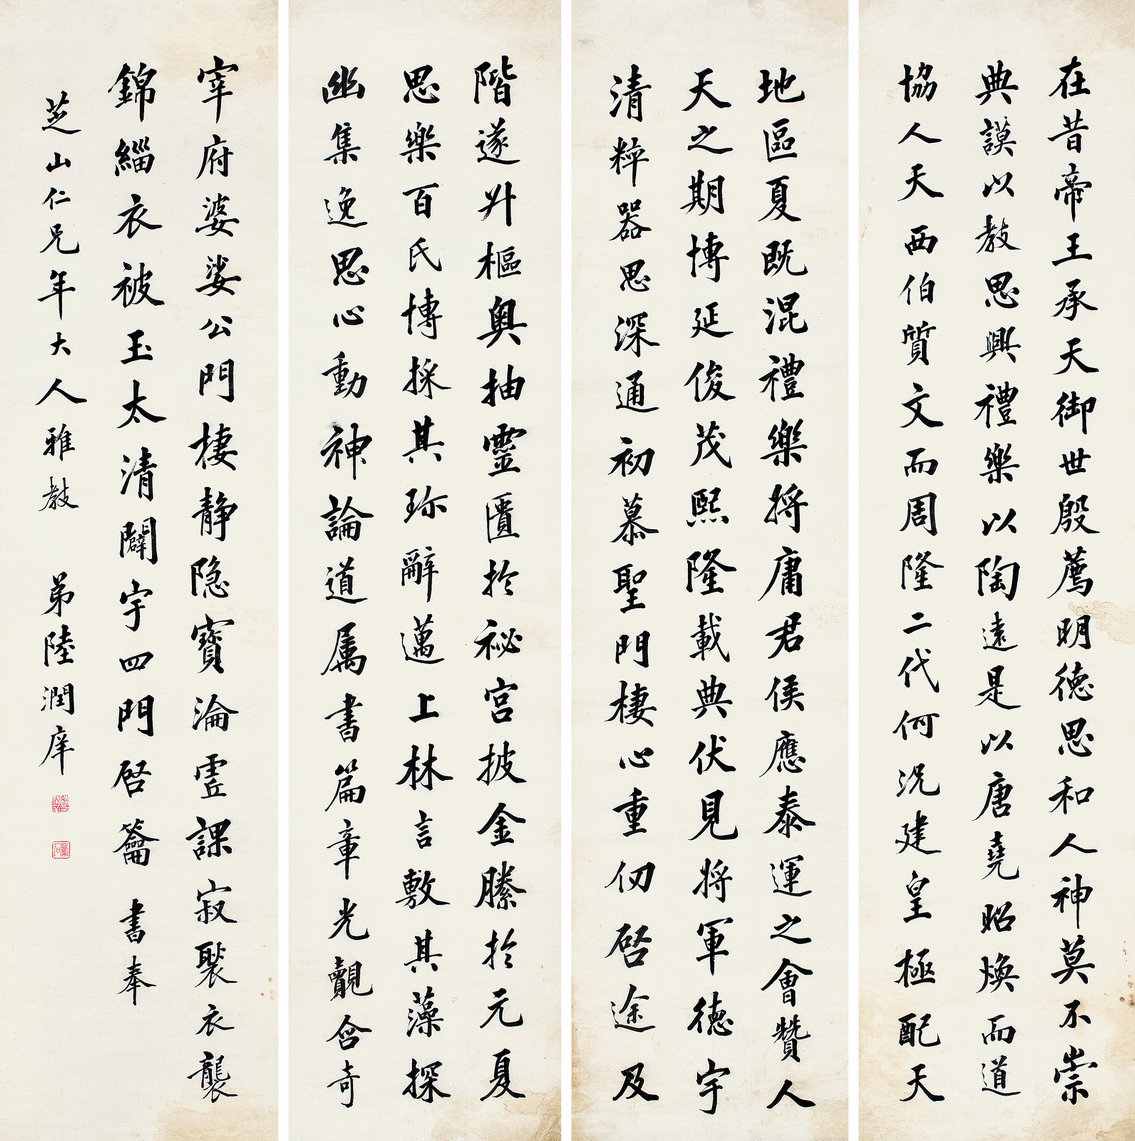 在昔帝王承天御世殷薦明德思和人神莫不崇
典謨以教思興禮樂以陶遠是以唐堯昭煥而道
協人天西伯質文而周隆二代何況建皇極配天
地區夏既混禮樂將庸君侯應泰運之會贊人
天之期博延俊茂熙隆載典伏見將軍德宇
清粹器思深通初慕聖門棲心重仞啓途及
階遂升樞奧抽靈匱於祕宮披金縢於元夏
思樂百氏博採其珎辭邁上林言敷其藻探
幽集逸思心動神論道属書篇章光覿含奇
宰府婆娑公門棲靜隐寶淪虛課寂裂衣襲
錦緇衣被玉太清闢宇四門啓籥 書奉
芝山仁兄年大人雅教 弟陸潤庠